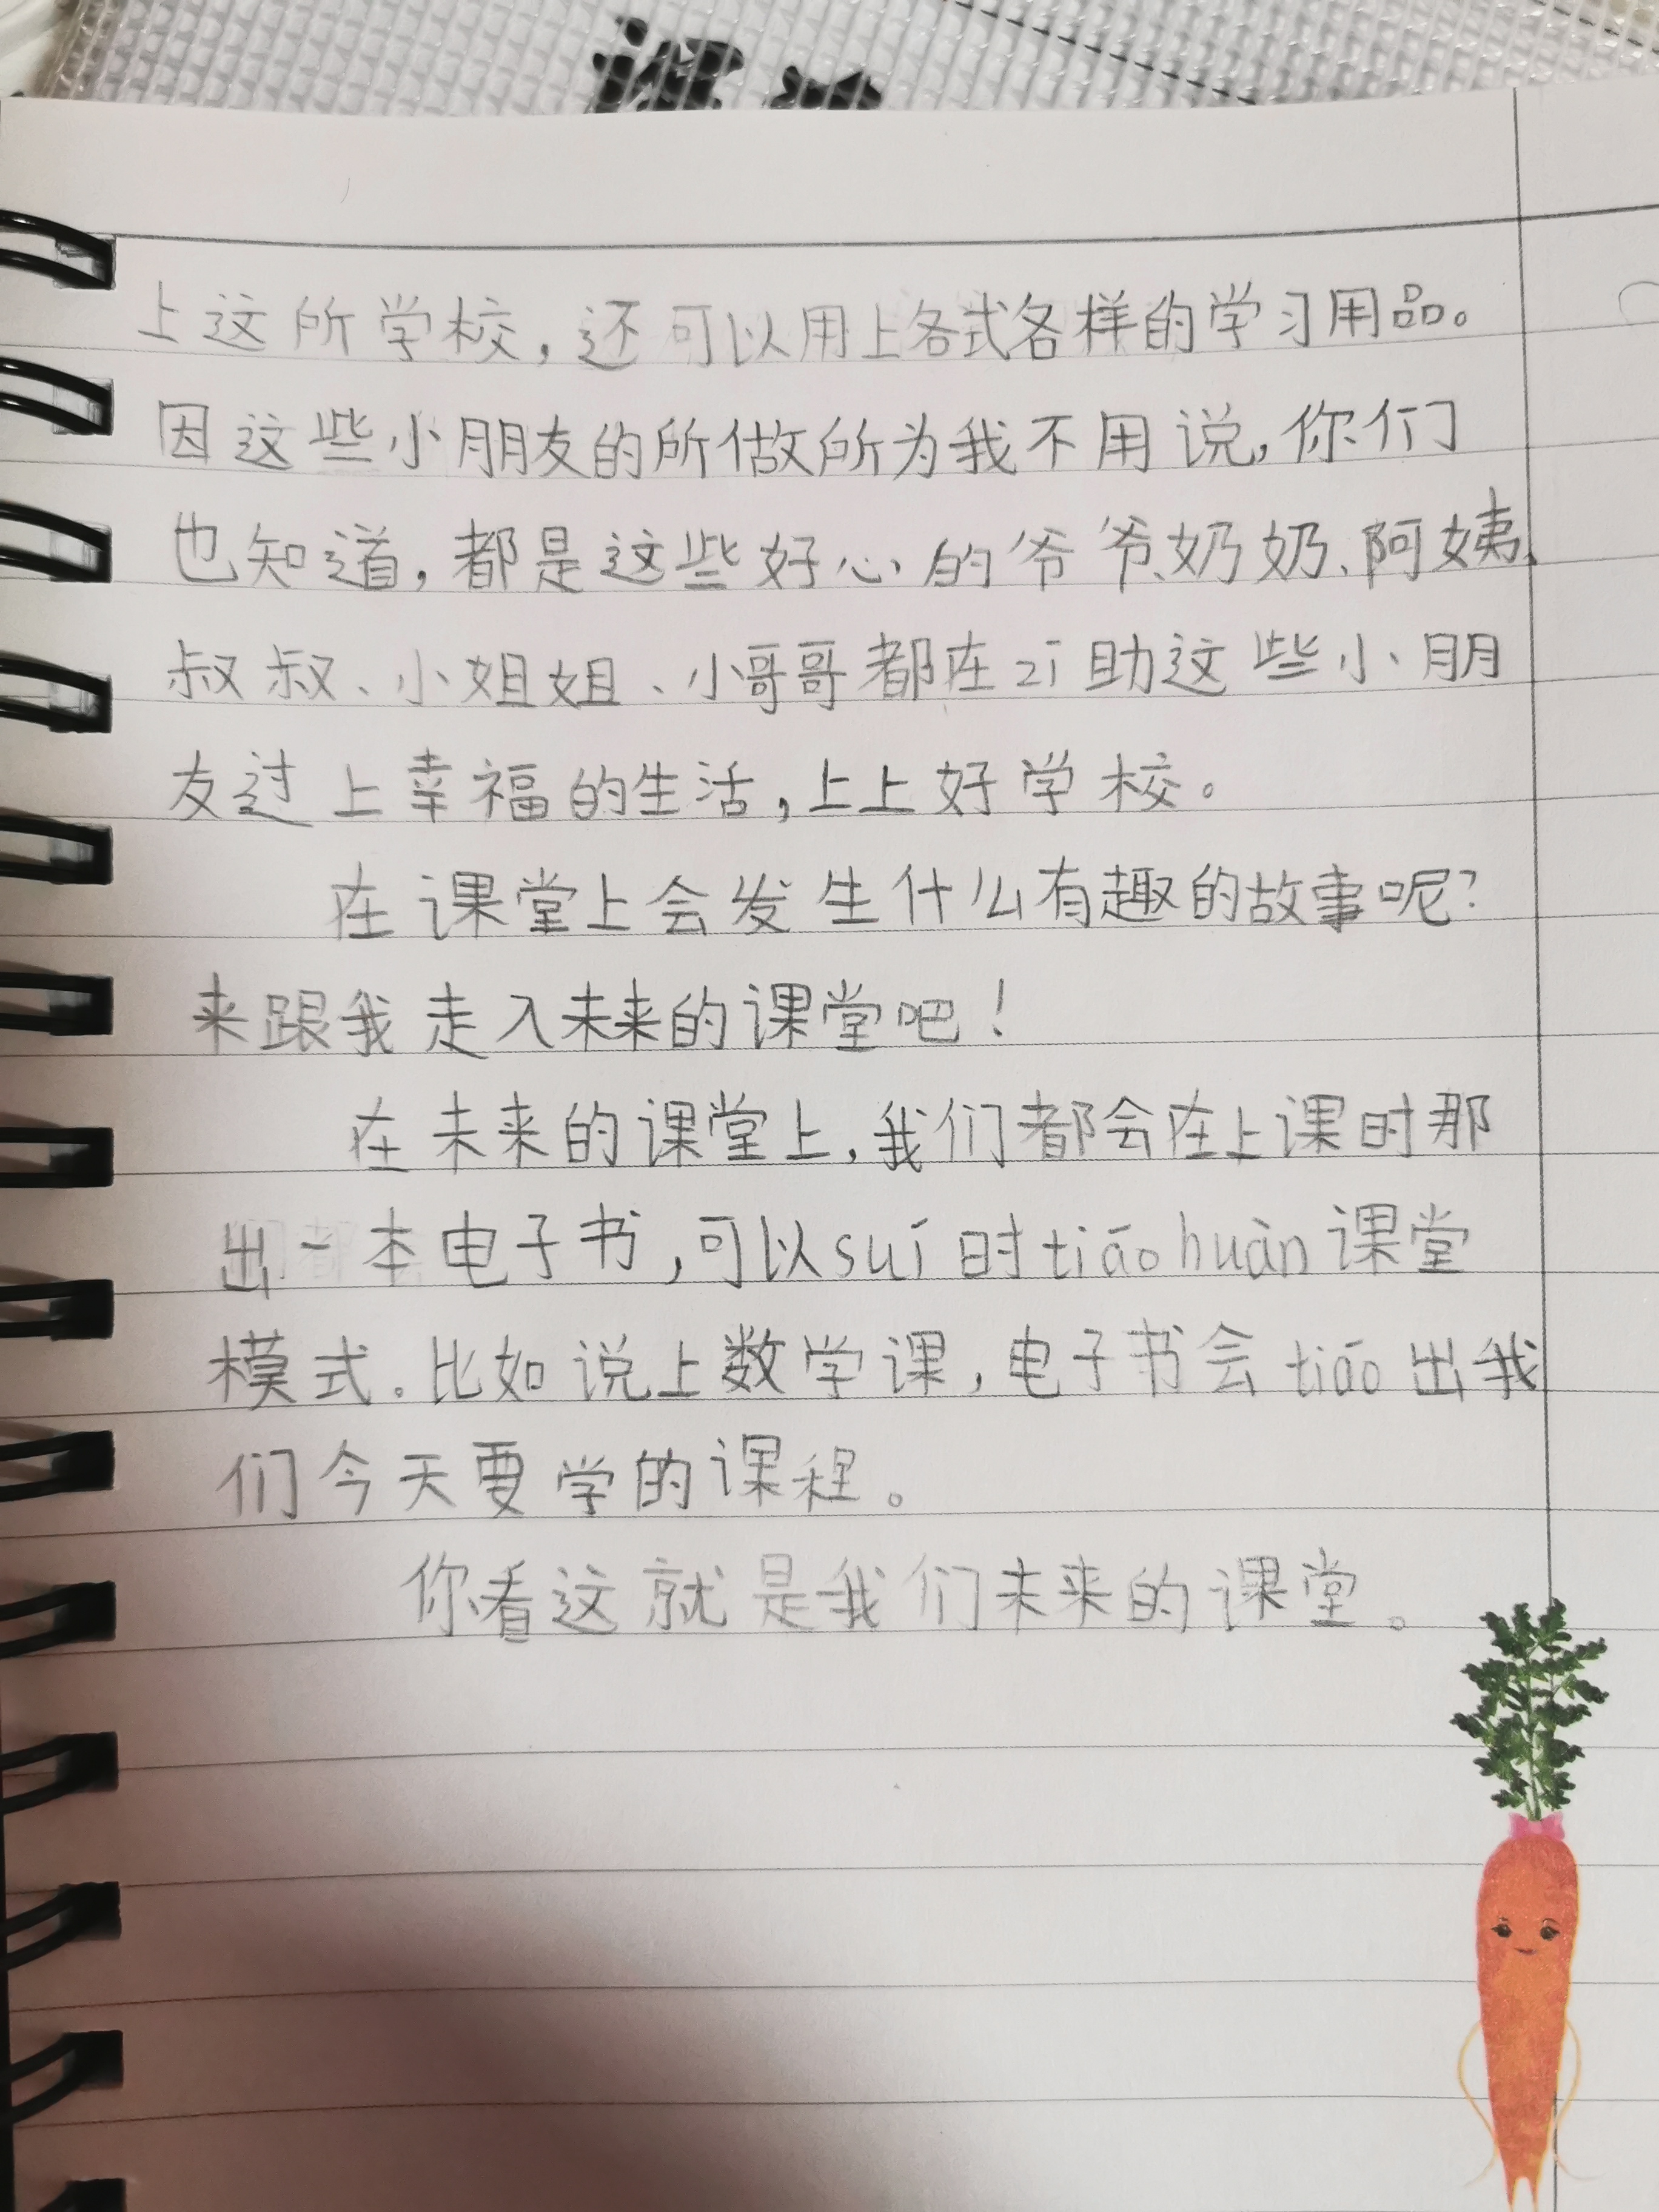 上这所学校，还可以用上各式各样的学习用品。
因这些小朋友的所做所为我不用说，你们
也知道，都是这些好心的爷爷、奶奶、阿姨、
叔叔、小姐姐、小哥哥都在zī助这些小朋
友过上幸福的生活，上上好学校。
在课堂上会发生什么有趣的故事呢？
来跟我走入未来的课堂吧！
在未来的课堂上，我们都会在上课时那
出一本电子书，可以suí时tiāohuàn课堂
模式。比如说上数学课，电子书会tiāo出我
们今天要学的课程。
你看这就是我们未来的课堂。